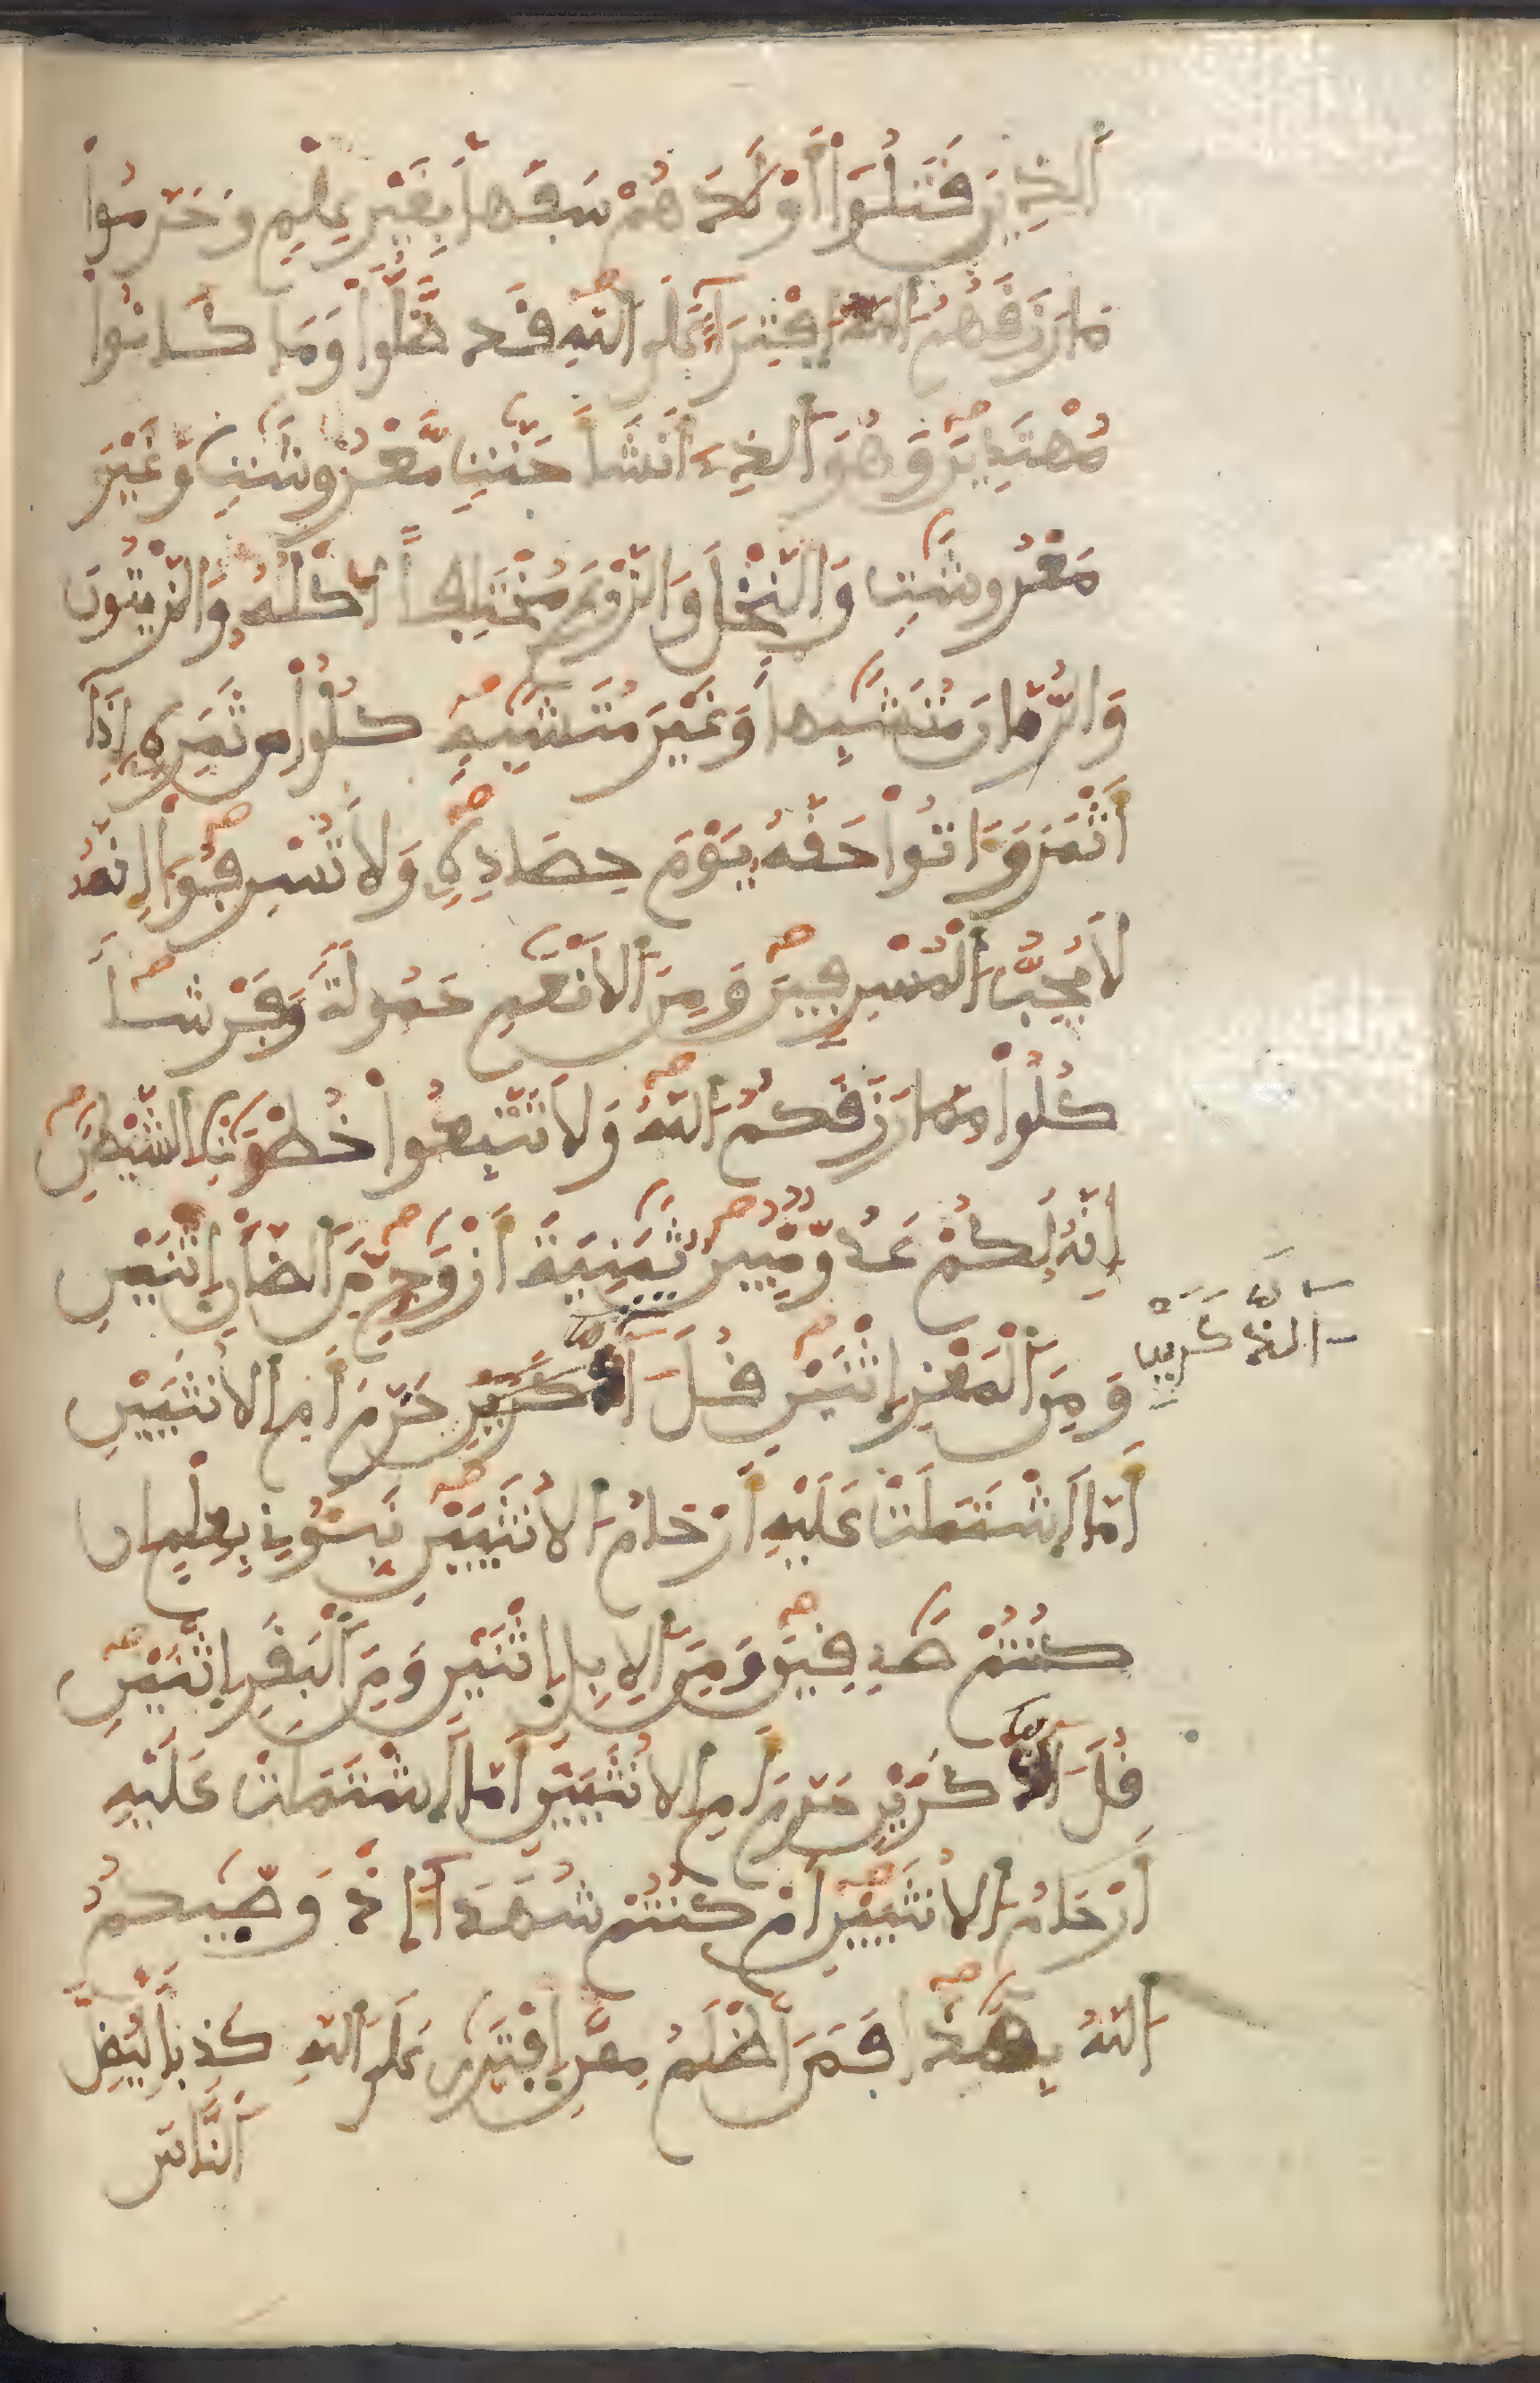 اَلذِينَ قَتَلُوٓاْ أَوْلَٰدَهُمْ سَفَهاَۢ بِغَيْرِ عِلْمٖ وَحَرَّمُواْ
مَا رَزَقَهُمُ اُ۬للَّهُ اُ۪فْتِرَآءً عَلَي اَ۬للَّهِ قَد ضَّلُّواْ وَمَا كَانُواْ
مُهْتَدِينَ وَهُوَ اَ۬لذِےٓ أَنشَأَ جَنَّٰتٖ مَّعْرُوشَٰتٖ وَغَيْرَ
مَعْرُوشَٰتٖ وَالنَّخْلَ وَالزَّرْعَ مُخْتَلِفاً أُكْلُهُۥ وَالزَّيْتُونَ
وَالرُّمَّانَ مُتَشَٰبِهاٗ وَغَيْرَ مُتَشَٰبِهٖ كُلُواْ مِن ثَمَرِهِۦٓ إِذَآ
أَثْمَرَ وَءَاتُواْ حَقَّهُۥ يَوْمَ حِصَادِهِۦ وَلَا تُسْرِفُوٓاْ إِنَّهُۥ
لَا يُحِبُّ اُ۬لْمُسْرِفِينَ وَمِنَ اَ۬لَانْعَٰمِ حَمُولَةٗ وَفَرْشاٗ
كُلُواْ مِمَّا رَزَقَكُمُ اُ۬للَّهُ وَلَا تَتَّبِعُواْ خُطْوَٰتِ اِ۬لشَّيْطَٰنِ
إِنَّهُۥ لَكُمْ عَدُوّٞ مُّبِينٞ ثَمَٰنِيَةَ أَزْوَٰجٖ مِّنَ اَ۬لضَّأْنِ اِ۪ثْنَيْنِ
وَمِنَ اَ۬لْمَعْزِ اِ۪ثْنَيْنِ قُلَ اٰ۬لذَّكَرَيْنِ حَرَّمَ أَمِ اِ۬لُانثَيَيْنِ
اَ۬لذَّكَرَيْنِ
أَمَّا اَ۪شْتَمَلَتْ عَلَيْهِ أَرْحَامُ اُ۬لُانثَيَيْنِ نَبِّـُٔونِے بِعِلْمٍ اِن
كُنتُمْ صَٰدِقِينَ وَمِنَ اَ۬لِابِلِ اِ۪ثْنَيْنِ وَمِنَ اَ۬لْبَقَرِ اِ۪ثْنَيْنِ
قُلَ اٰ۬لذَّكَرَيْنِ حَرَّمَ أَمِ اِ۬لُانثَيَيْنِ أَمَّا اَ۪شْتَمَلَتْ عَلَيْهِ
أَرْحَامُ اُ۬لُانثَيَيْنِ أَمْ كُنتُمْ شُهَدَآءَ اِذْ وَصَّيٰكُمُ
اُ۬للَّهُ بِهَٰذَا فَمَنَ اَظْلَمُ مِمَّنِ اِ۪فْتَرَيٰ عَلَي اَ۬للَّهِ كَذِباٗ لِّيُضِلَّ
اَ۬لنَّاسَ